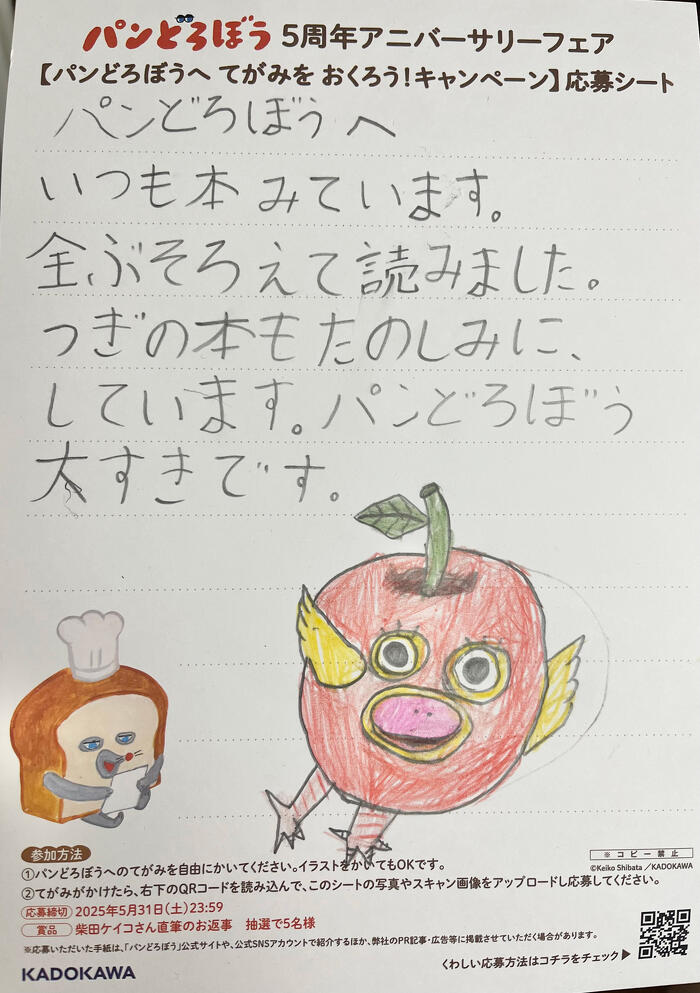 パンどろぼう 5周年アニバーサリーフェア
【パンどろぼうへ てがみを おくろう!キャンペーン】応募シート
パンどろぼうへ
いつも本みています。
全ぶそろえて読みました。
つぎの本もたのしみに、
しています。パンどろぼう
大すきです。
参加方法
※コピー禁止
©Keiko Shibata/KADOKAWA
①パンどろぼうへのてがみを自由にかいてください。イラストをかいてもOKです。
②てがみがかけたら、右下のQRコードを読み込んで、このシートの写真やスキャン画像をアップロードし応募してください。
応募締切 2025年5月31日(土)23:59
賞品 柴田ケイコさん直筆のお返事 抽選で5名様
※応募いただいた手紙は、「パンどろぼう」公式サイトや、公式SNSアカウントで紹介するほか、弊社のPR記事・広告等に掲載させていただく場合があります。
KADOKAWA
くわしい応募方法はコチラをチェック▶